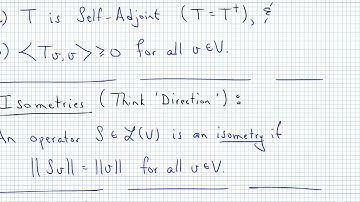 ) T is Self-Adjoint (T = T†), &
) <Tv, v> ≥ 0 for all v ∈ V.
Isometries (Think 'Direction'):
An operator S ∈ L(V) is an isometry if
||Sv|| = ||v|| for all v ∈ V.